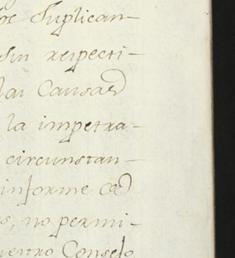 de Suplican-
sin respecti-
las Causas
la impetra-
circunstan-
informe
s, no permi-
uestro Consejo